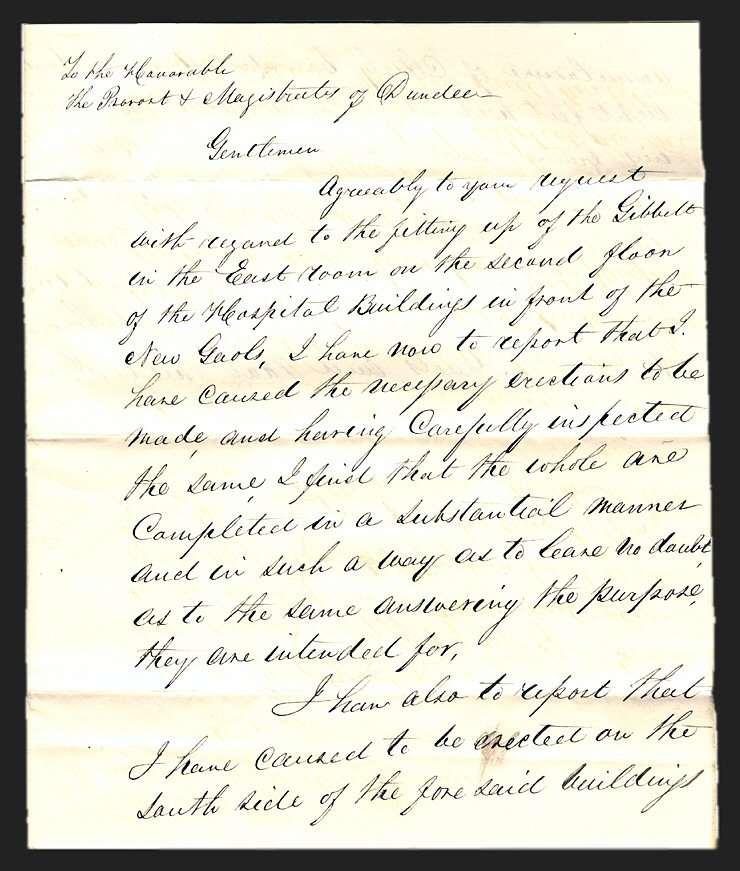 To the Honorable
the Provost & Magistrates of Dundee
Gentlemen
Agreeably to your request
with regard to the fitting up of the Gibbett
in the East room on the second floor
of the Hospital Buildings in front of the
New Gaols, I have now to report that I.
have caused the necessary erections to be
made, and having Carefully inspected
the same, I find that the whole are
Completed in a substantial manner
and in such a way as to leave no doubt
as to the same answering the purpose,
they are intended for,
I have also to report that
I have caused to be erected on the
south side of the fore said buildings